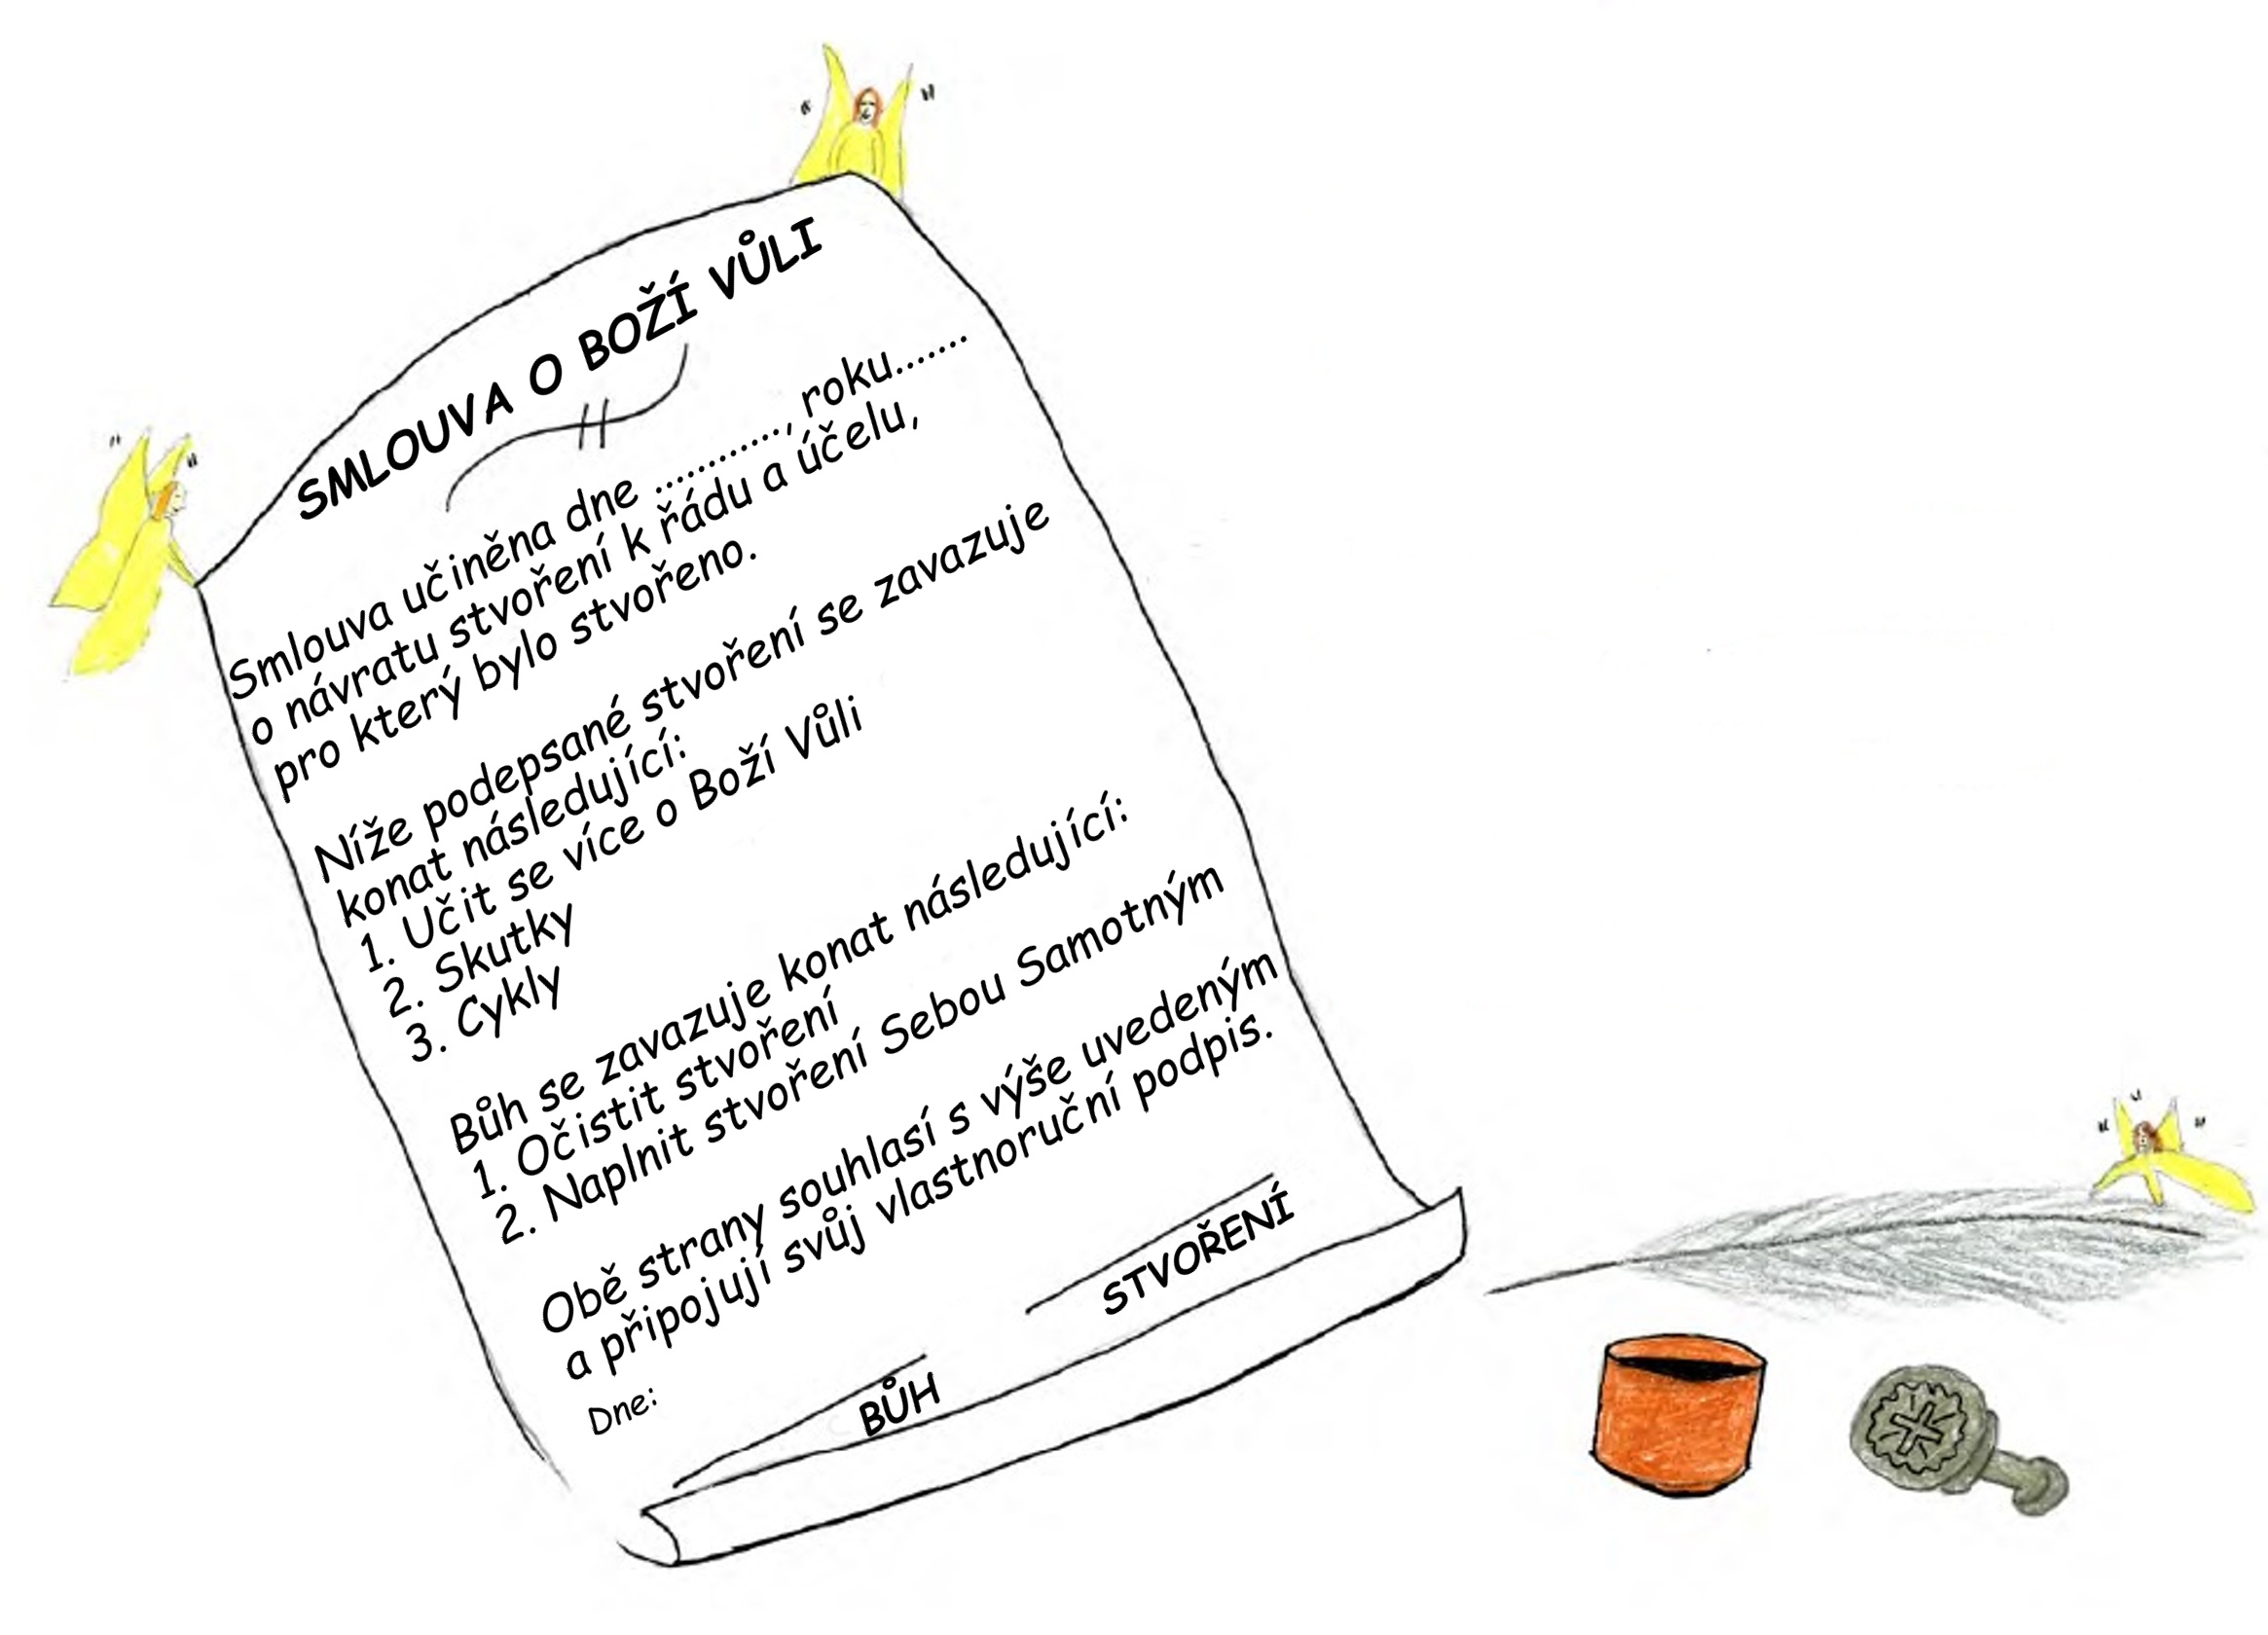 SMLOUVA O BOŽÍ VŮLI
Smlouva učiněna dne ............, roku.......
o návratu stvoření k řádu a účelu,
pro který bylo stvořeno.
Níže podepsané stvoření se zavazuje
konat následující:
1. Učit se více o Boží Vůli
2. Skutky
3. Cykly
Bůh se zavazuje konat následující:
1. Očistit stvoření
2. Naplnit stvoření Sebou Samotným
Obě strany souhlasí s výše uvedeným
a připojují svůj vlastnoruční podpis.
Dne:
BŮH
STVOŘENÍ